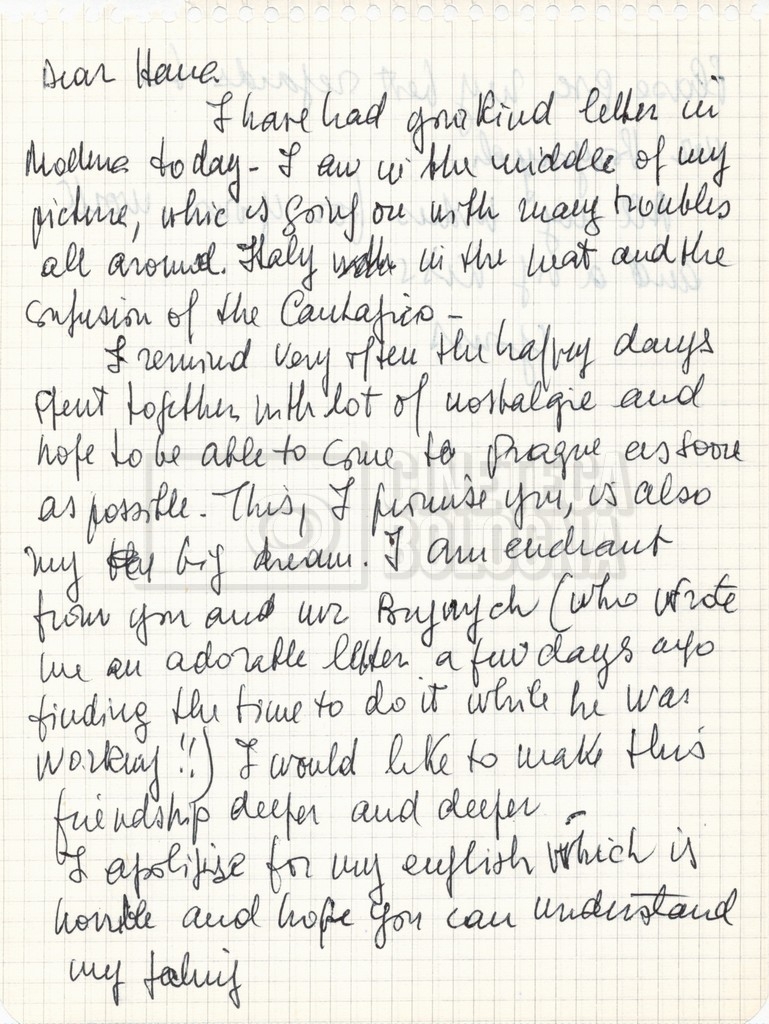 Dear Hana.
I have had your kind letter in
Modena today - I am in the middle of my
picture, which is going on with many troubles
all around. Italy in the heat and the
confusion of the Cantagiro -
I remind very often the happy days
spent together with lot of nostalgie and
hope to be able to come to Prague as soon
as possible. This, I promise you, is also
my big dream. I am enchant
from you and mr Brynych (who wrote
me an adorable letter a few days ago
finding the time to do it while he was
working!!) I would like to make this
friendship deeper and deeper -
I apoligise for my english which is
horrible and hope you can understand
my
CINETECA
BOLOGNA